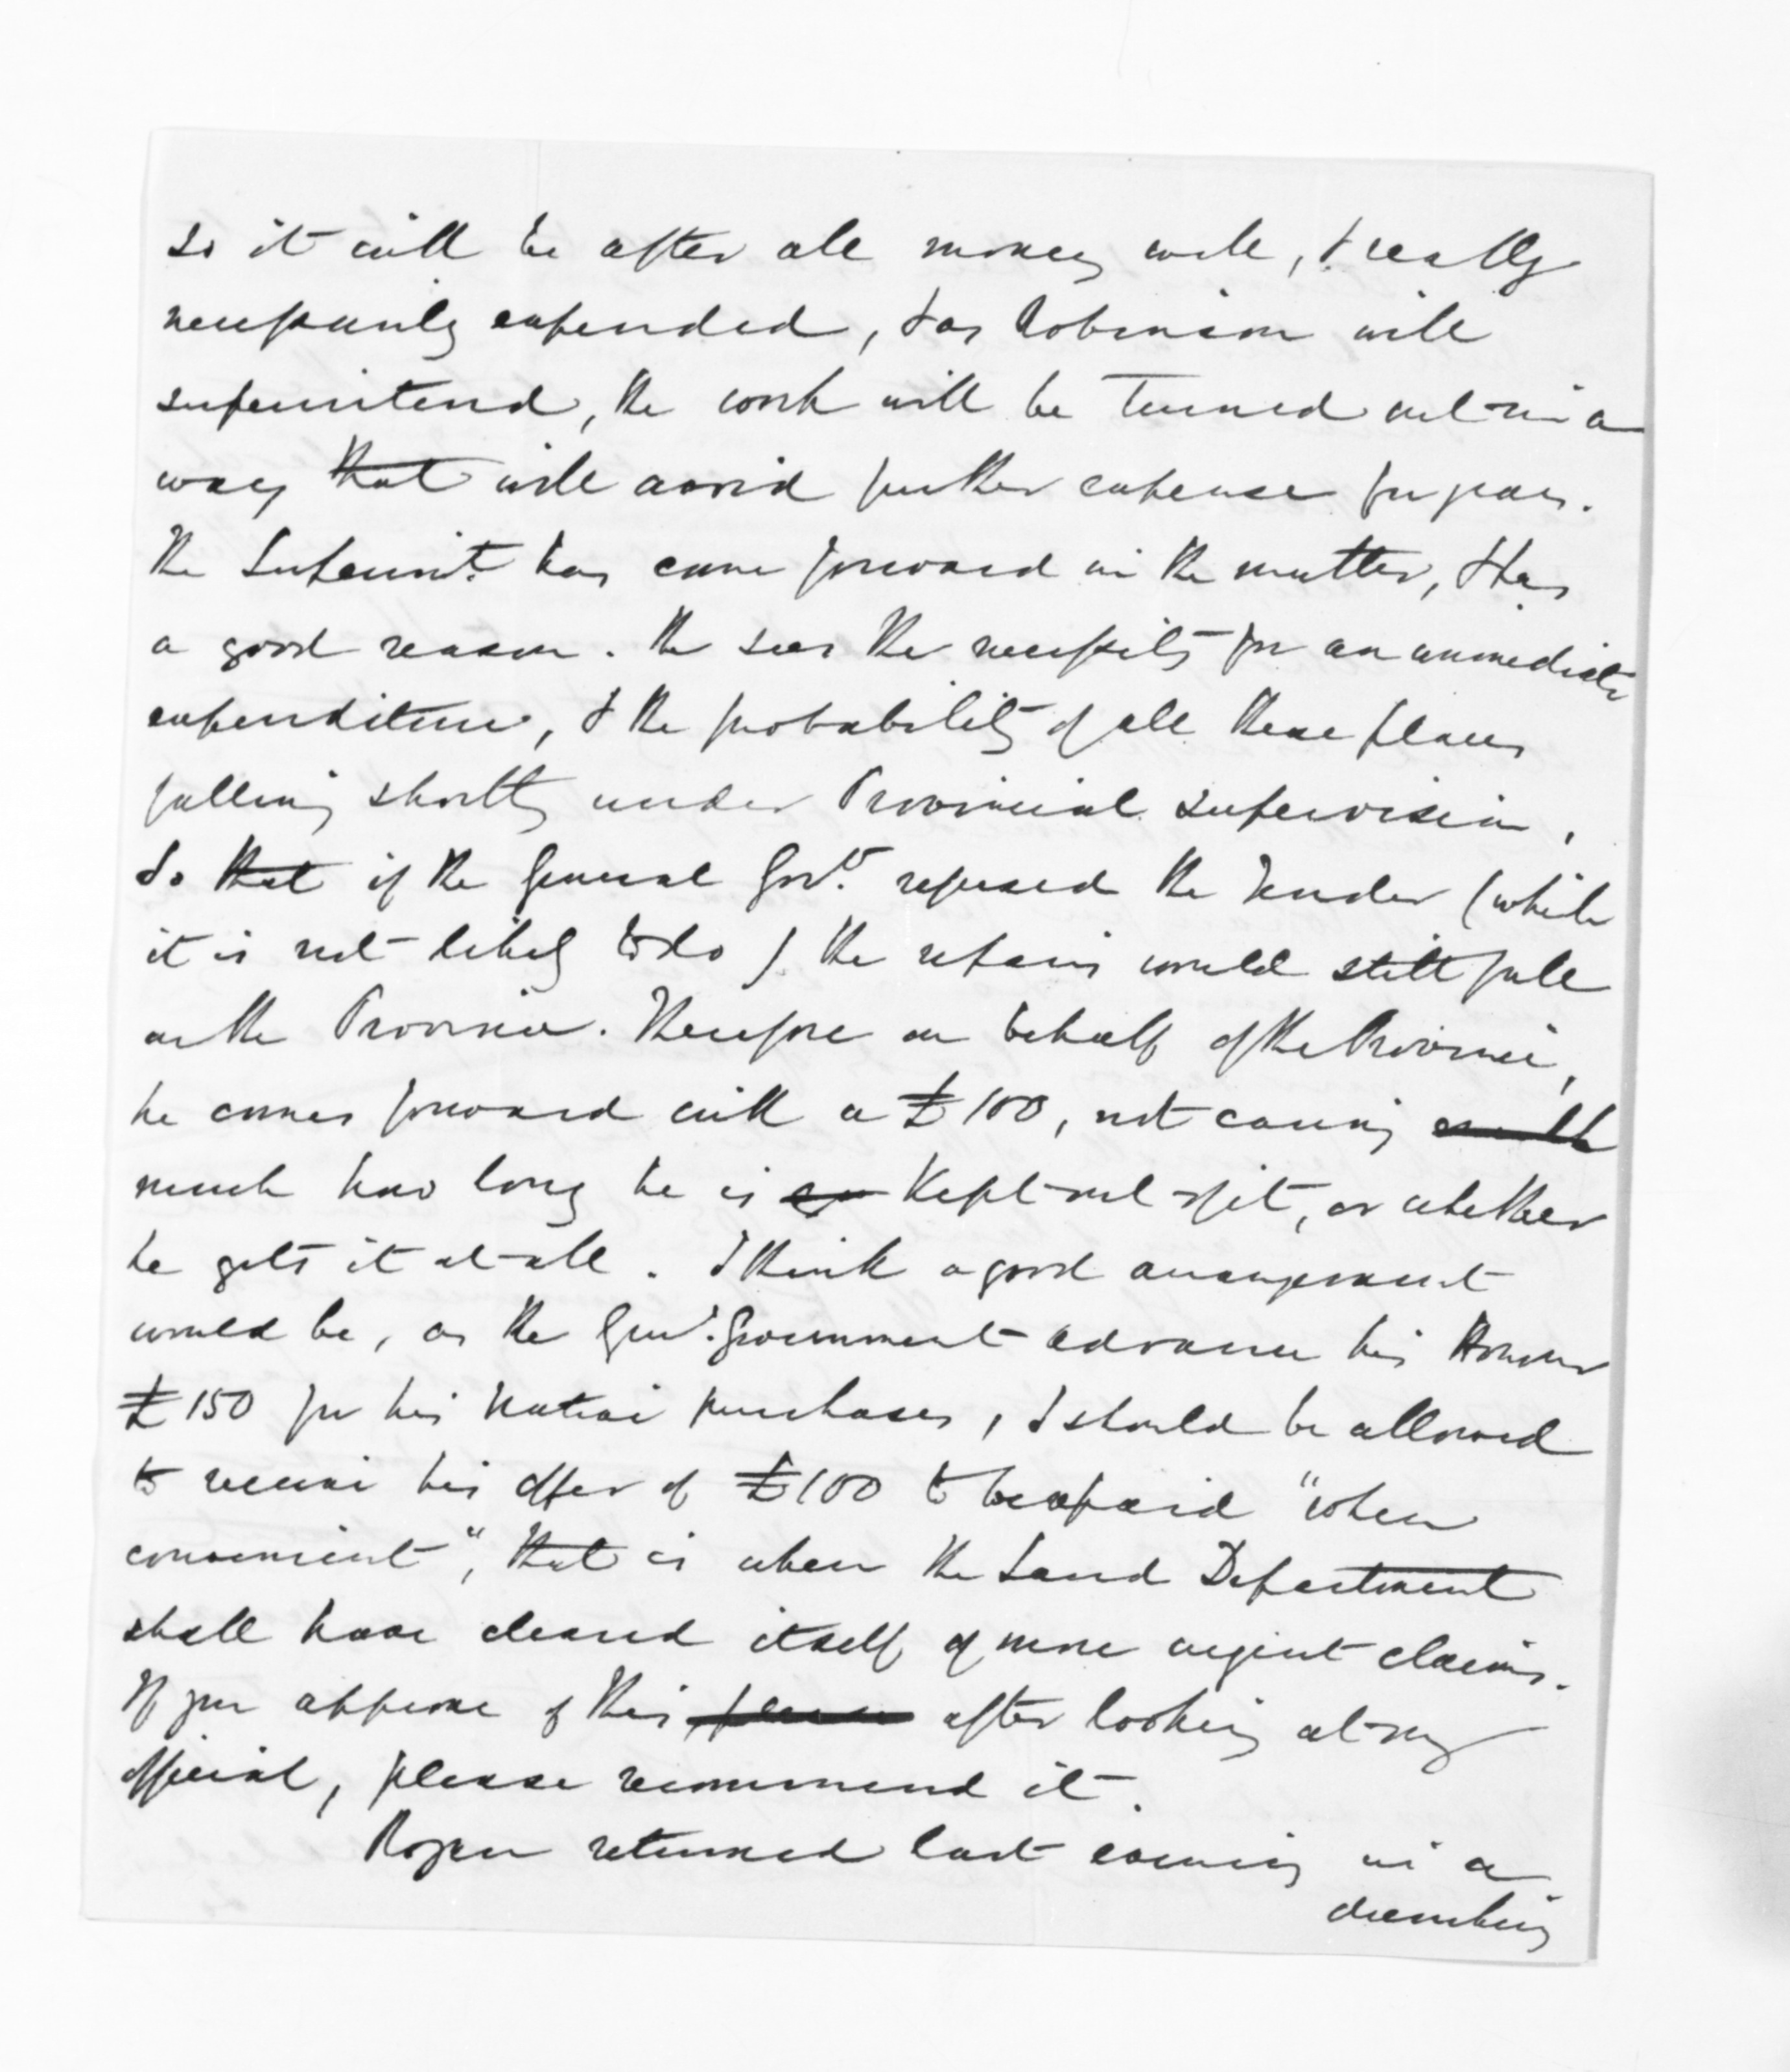 So it will be after all money well, & really
necessarily expended, & as Robinson will
superintend, the work will be turned out in a
way that will avoid further expense for years.
The Superint. has come forward in the matter, & has
a good reason. He sees the necessity for an immediate
expenditure, & the probability of all these places
falling shortly under Provincial supervision.
So that if the General Govt. refused the tender (which
it is not likely to do) the repairs would still fall
on the Province. Therefore on behalf of the Province,
he comes forward with a £100, not caring
much how long he is kept out of it, or whether
he gets it at all. I think a good arrangement
would be, as the Genl. Government advance his Honour
£150 for his Native purchases, I should be allowed
to receive his offer of £100 to be repaid "when
convenient", that is when the Land Department
shall have cleared itself of more urgent claims.
If you approve of this after looking at my
official, please recommend it.
Rogan returned last evening in a